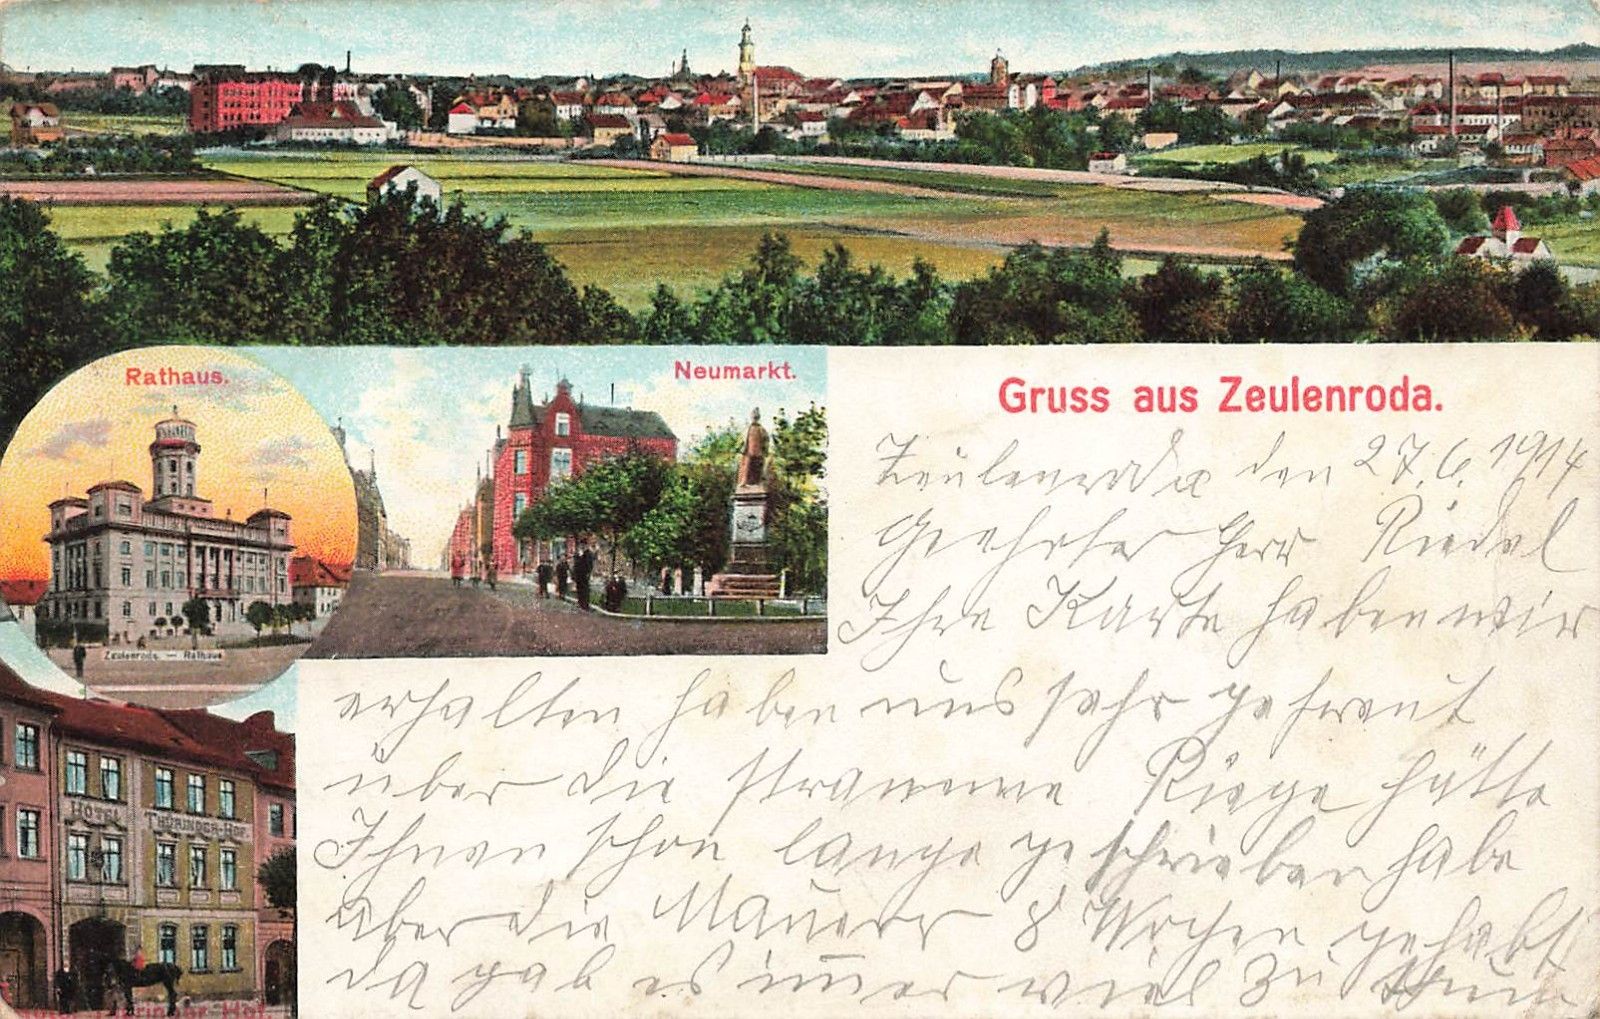 Rathaus.
Neumarkt.
Gruss aus Zeulenroda.
Zeulenroda den 27.6.1914
Geehrter Herr Riedel
Ihre Karte haben wir
erhalten haben uns sehr gefreut
über die stramme Riege hätte
Ihnen schon lange geschrieben habe
aber die Maurer 8 Wochen gehabt
da gab es immer viel zu
Zeulenroda. — Rathaus
HOTEL THÜRINGER-HOF
Hotel Thüringer Hof.